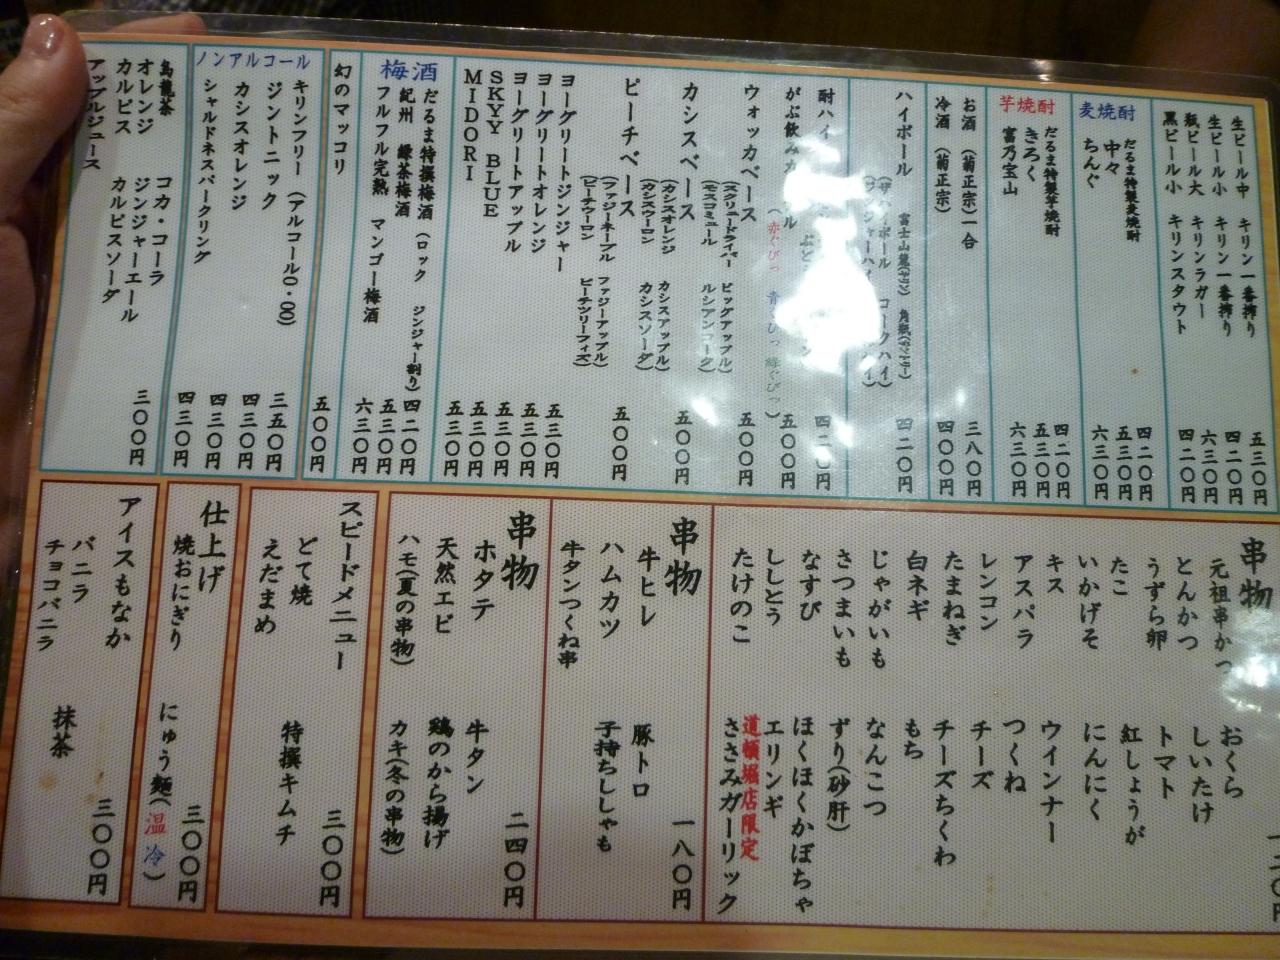 生ビール中 キリン一番搾り 五三〇円
生ビール小 キリン一番搾り 四二〇円
瓶ビール大 キリンラガー 六三〇円
黒ビール小 キリンスタウト 四二〇円
麦焼酎
だるま特製麦焼酎 四二〇円
中々 五三〇円
ちんぐ 六三〇円
芋焼酎
だるま特製芋焼酎 四二〇円
きろく 五三〇円
富乃宝山 六三〇円
お酒(菊正宗)一合 三八〇円
冷酒(菊正宗) 四〇〇円
ハイボール 富士山麓(キリン) 角瓶(サントリー) 四二〇円
(ザハイボール コークハイ)
(ジンジャーハイ
酎ハイ 四二〇円
がぶ飲みカ 五〇〇円
(赤ぐびっ 青ぐびっ 緑ぐびっ)
ウォッカベース 五〇〇円
(スクリュードライバー ビッグアップル)
(モスコミュール ルシアンコーク)
カシスベース 五〇〇円
(カシスオレンジ カシスアップル)
(カシスウーロン カシスソーダ)
ピーチベース 五〇〇円
(ファジーネーブル ファジーアップル)
(ピーチウーロン ピーチツリーフィズ)
ヨーグリートジンジャー 五三〇円
ヨーグリートオレンジ 五三〇円
ヨーグリートアップル 五三〇円
SKYY BLUE 五三〇円
MIDORI 五三〇円
梅酒
だるま特撰梅酒(ロック ジンジャー割り) 四二〇円
紀州 緑茶梅酒 五三〇円
フルフル完熟 マンゴー梅酒 六三〇円
幻のマッコリ 五〇〇円
ノンアルコール
キリンフリー(アルコール0・00) 三五〇円
ジントニック 四三〇円
カシスオレンジ 四三〇円
シャルドネスパークリング 四三〇円
烏龍茶 コカ・コーラ 三〇〇円
オレンジ ジンジャーエール
カルピス カルピスソーダ
アップルジュース
串物 一二〇円
元祖串かつ おくら
とんかつ しいたけ
うずら卵 トマト
たこ 紅しょうが
いかげそ にんにく
キス ウインナー
アスパラ つくね
レンコン チーズ
たまねぎ チーズちくわ
白ネギ もち
じゃがいも なんこつ
さつまいも ずり(砂肝)
なすび ほくほくかぼちゃ
ししとう エリンギ
道頓堀店限定
たけのこ ささみガーリック
串物 一八〇円
牛ヒレ 豚トロ
ハムカツ 子持ちししゃも
牛タンつくね串
串物 二四〇円
ホタテ 牛タン
天然エビ 鶏のから揚げ
ハモ(夏の串物) カキ(冬の串物)
スピードメニュー 三〇〇円
どて焼 特撰キムチ
えだまめ
仕上げ 三〇〇円
焼おにぎり にゅう麺(温 冷)
アイスもなか 三〇〇円
バニラ 抹茶
チョコバニラ